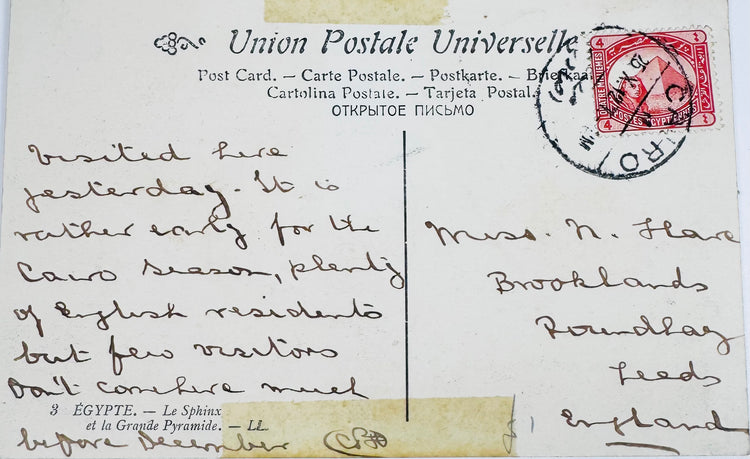 Union Postale Universelle
Post Card. — Carte Postale. — Postkarte. — Briefkaart
Cartolina Postale. — Tarjeta Postal.
ОТКРЫТОЕ ПИСЬМО
4 4
POSTES EGYPTIENNES
CAIRO
Visited here
yesterday. It is
rather early for the
Cairo season, plenty
of English residents
but few visitors
Don't come here much
before December
Miss. N. Hare
Brooklands
Roundhay
Leeds
England
3 ÉGYPTE. — Le Sphinx
et la Grande Pyramide. — LL